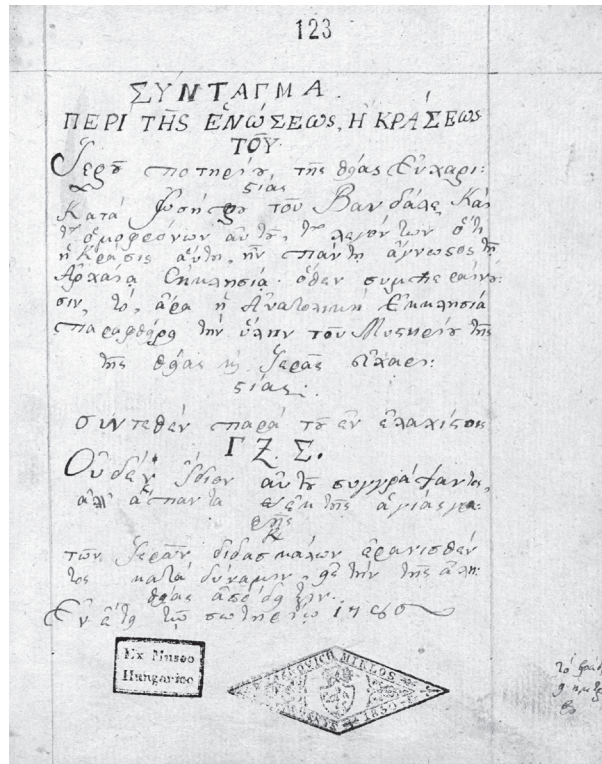 123
ΣΥΝΤΑΓΜΑ.
ΠΕΡΙ ΤΗΣ ἙΝΩΣΕΩς, Ἢ ΚΡΆΣΕΩς
ΤΟΥ
Ἱεροῦ ποτηρίου τῆς θείας Εὐχαρι:
ςίας
Κατὰ τοῦ Βανδάλε, Καὶ
τῶν ὁμοφρόνων αὐτῷ, τῶν λεγόντων ὅτι
ἡ Κρᾶσις αὕτη, ἦν πάντη ἄγνωςος τῇ
Ἀρχαίᾳ Ἐκκλησίᾳ. ὅθεν συμπεραίνου:
σιν, τὸ, ἄρα ἡ Ἀνατολικὴ Ἐκκλησία
παραφθείρει τὴν ὕλην τοῦ Μυςηρίου τῆς
τῆς θείας καὶ Ἱερᾶς εὐχαρι:
ςίας.
συντεθὲν παρὰ τοῦ ἐν ἐλαχίςοις
Γ Ζ. Σ.
Οὐδὲν ἴδιον αὐτοῦ συγγράψαντος,
ἀλλ' ἅπαντα ἐκ τῆς ἁγίας γρα:
φῆς
τῶν Ἱερῶν διδασκάλων ἐρανισθέν
τος κατὰ δύναμιν, τὴν τῆς ἀλη:
θείας ἀπόδειξιν.
Ἐν ἔτει τῷ σωτηρίῳ
Ex Museo
Hungarico
JANKOVICH MIKLOS